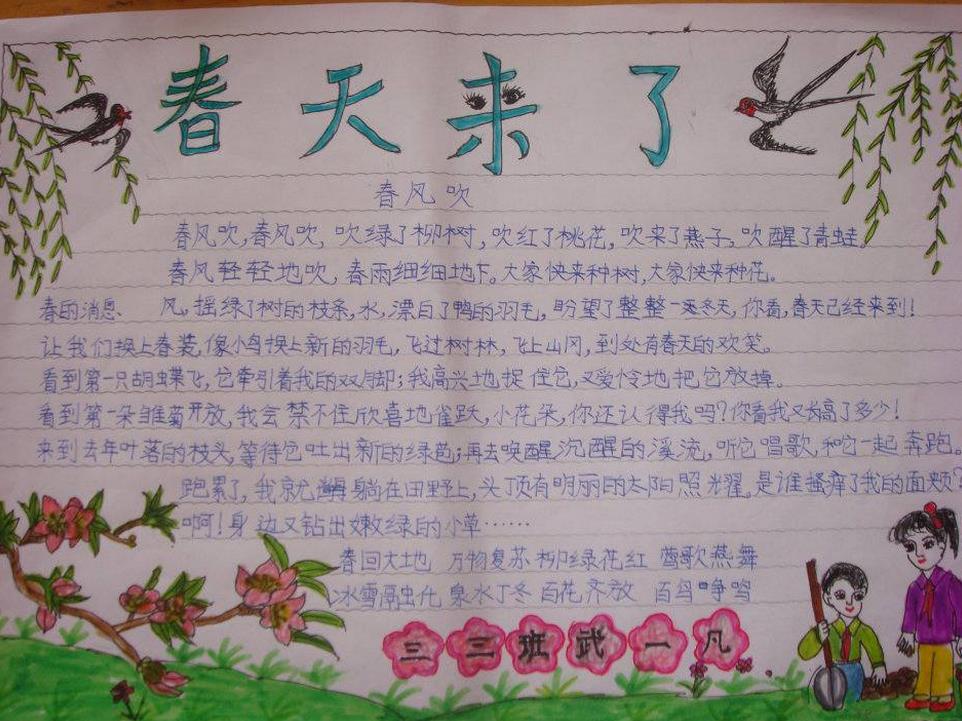 春天来了
春风吹
春风吹,春风吹, 吹绿了柳树, 吹红了桃花, 吹来了燕子。吹醒了青蛙。
春风轻轻地吹, 春雨细细地下。大家快来种树, 大家快来种花。
春的消息、 风, 摇绿了树的枝条, 水, 漂白了鸭的羽毛, 盼望了整整一冬天, 你看, 春天已经来到!
让我们换上春装, 像小鸟换上新的羽毛, 飞过树林, 飞上山冈, 到处有春天的欢笑。
看到第一只胡蝶飞, 它牵引着我的双脚; 我高兴地捉住它, 又爱怜地把它放掉。
看到第一朵雏菊开放, 我会禁不住欣喜地雀跃, 小花朵, 你还认得我吗? 你看我又长高了多少!
来到去年叶落的枝头, 等待它吐出新的绿芭; 再去唤醒沉醒的溪流, 听它唱歌, 和它一起奔跑。
跑累了, 我就躺在田野上, 头顶有明丽的太阳照耀。是谁搔痒了我的面颊?
啊! 身边又钻出嫩绿的小草……
春回大地 万物复苏 柳绿花红 莺歌燕舞
冰雪融化 泉水丁冬 百花齐放 百鸟争鸣
三三班武一凡